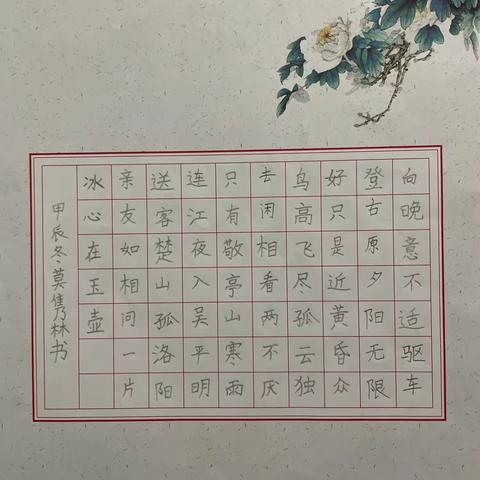 向晚意不适驱车
登古原夕阳无限
好只是近黄昏众
鸟高飞尽孤云独
去闲相看两不厌
只有敬亭山寒雨
连江夜入吴平明
送客楚山孤洛阳
亲友如相问一片
冰心在玉壶
甲辰冬莫隽林书